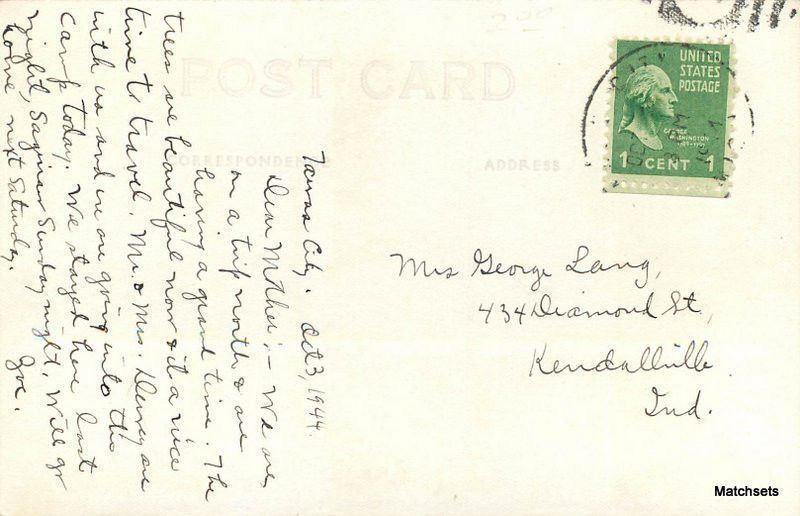 POST CARD
CORRESPONDENCE
ADDRESS
UNITED
STATES
POSTAGE
GEORGE
WASHINGTON
1789-1797
1 CENT 1
Tawas City. Oct 3, 1944.
Dear Mother:- We are
on a trip north & are
having a grand time. The
trees are beautiful now & it a nice
time to travel. Mr. & Mrs. are
with us and we are going into the
Camp today. We stayed here last
night, Saginaw Sunday night. Will go
home next Saturday.
Zoe.
Mrs George Lang,
434 Diamond St,
Kendallville
Ind.
Matchsets